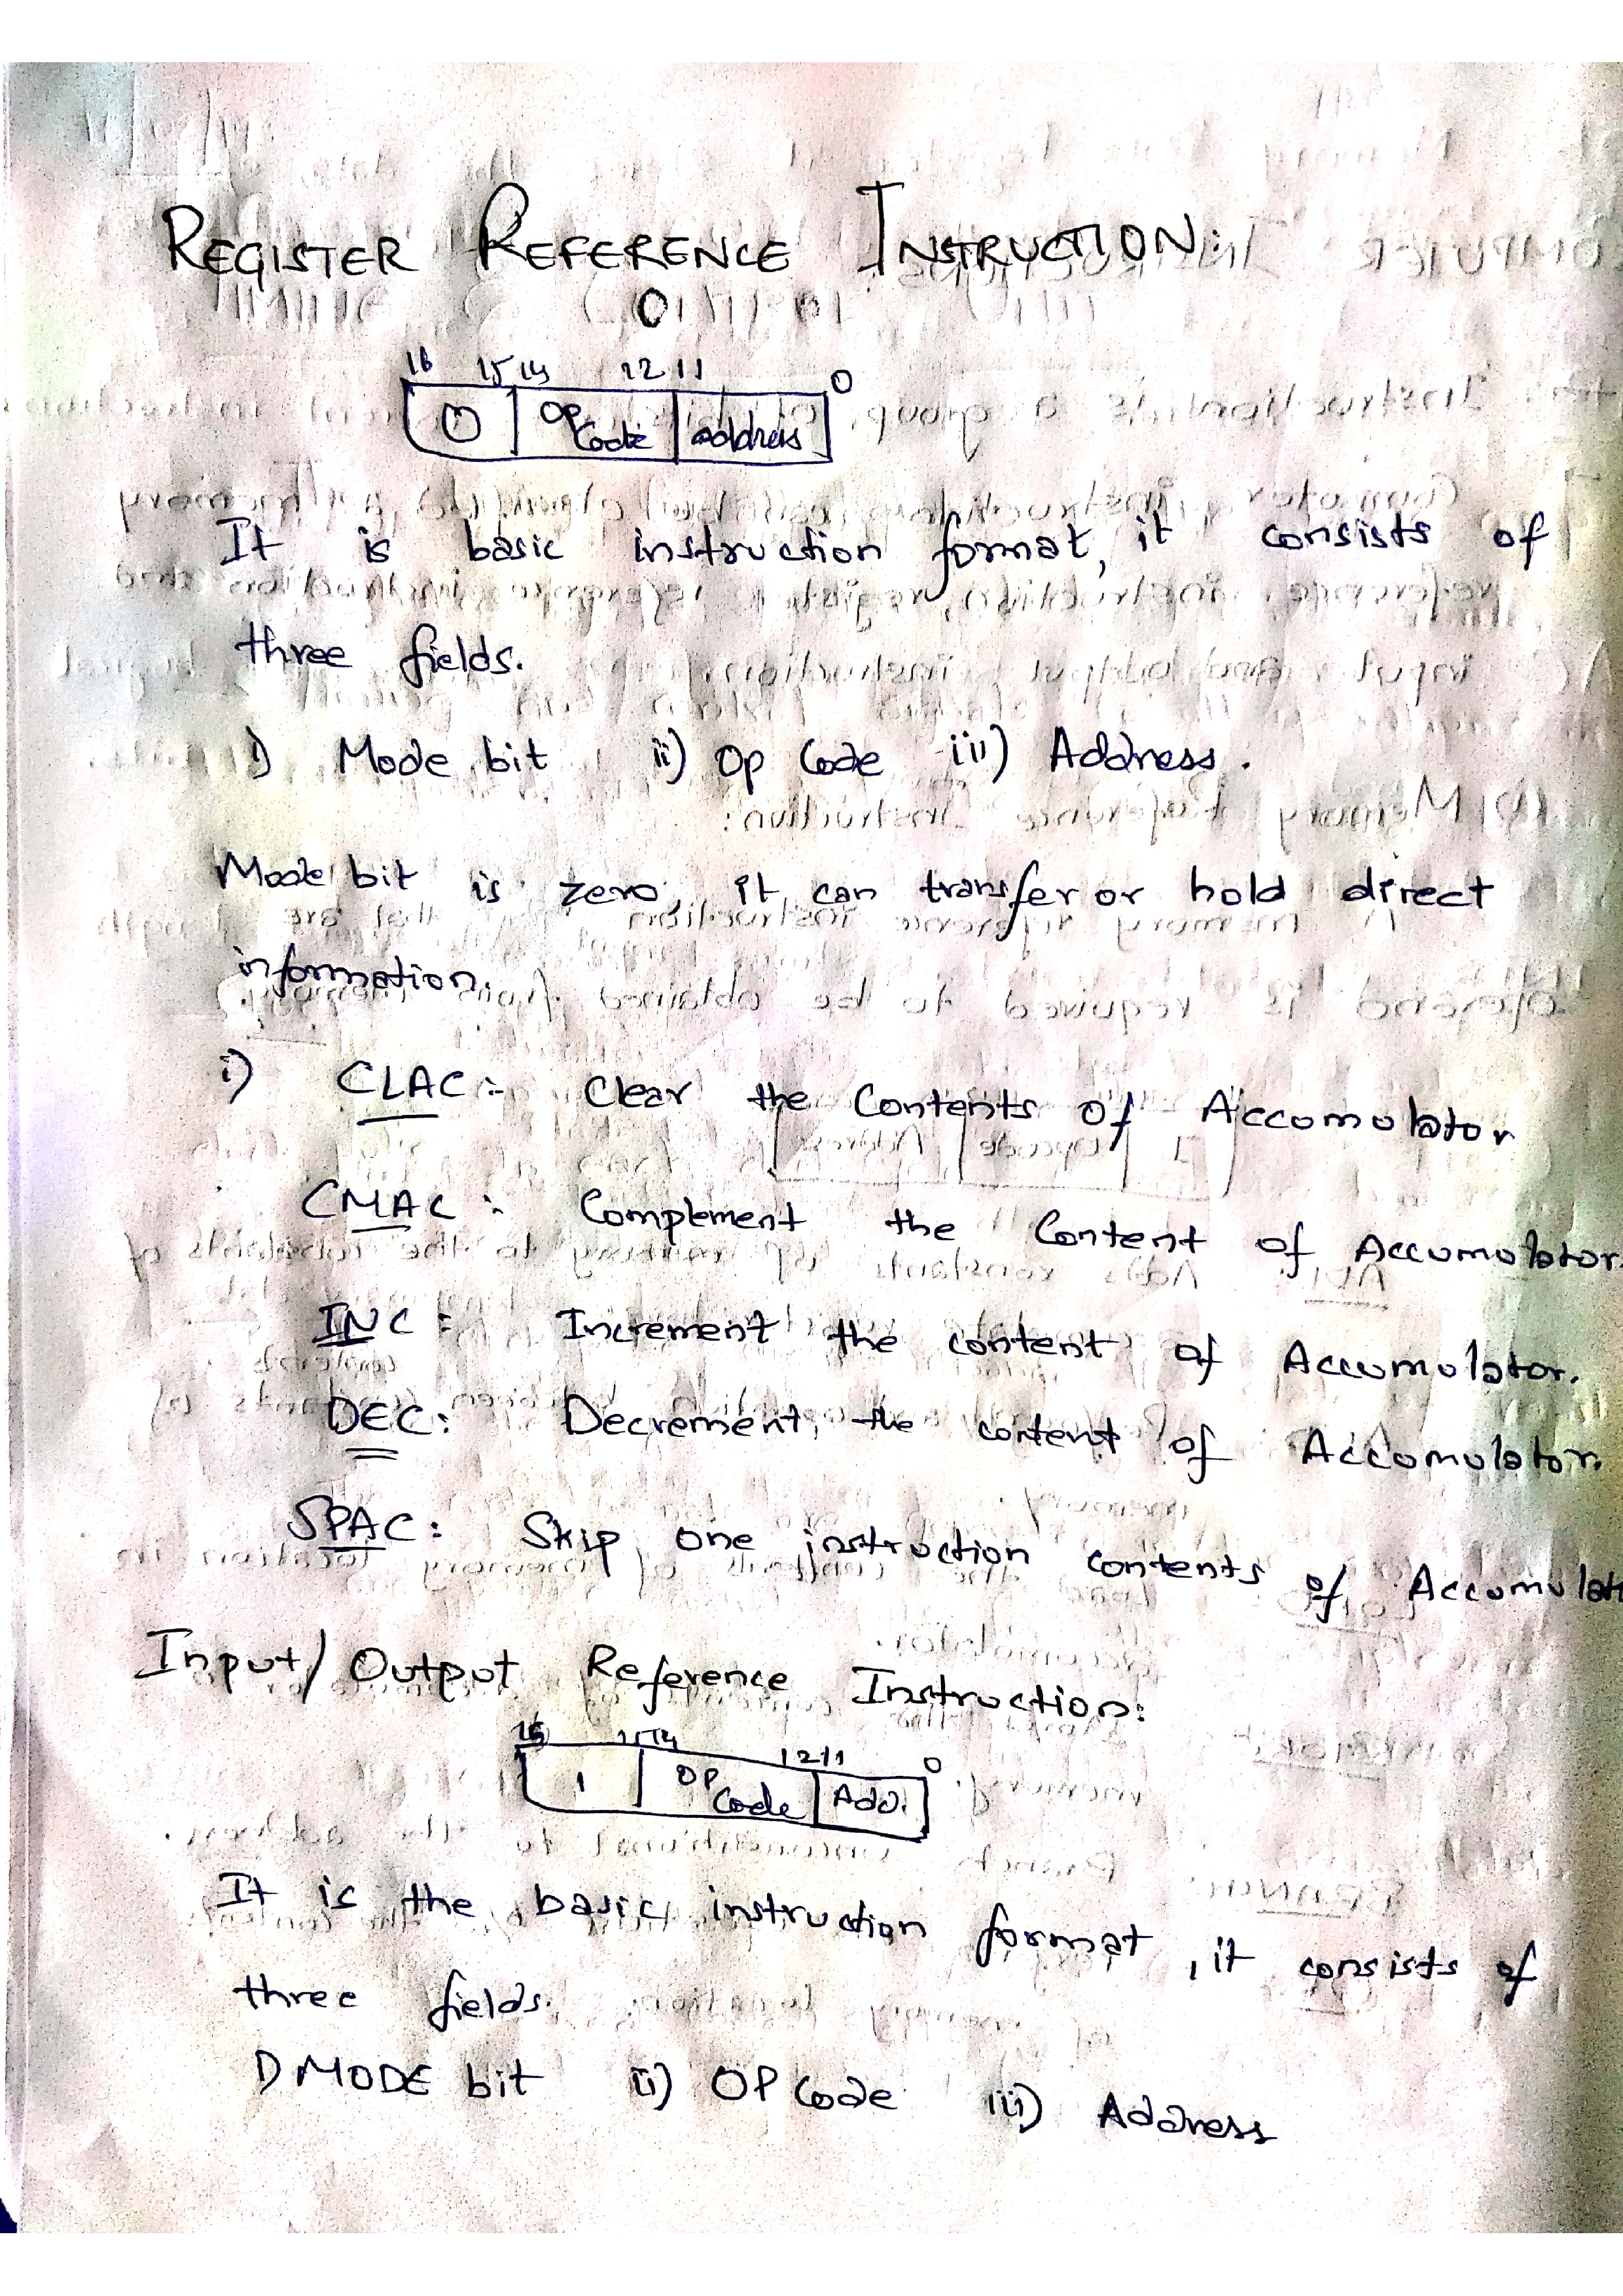 REGISTER REFERENCE INSTRUCTION:
0
16 15 14 12 11 0
0 OP Code address
It is basic instruction format, it consists of
three fields.
i) Mode bit ii) Op Code iii) Address.
Mode bit is zero, it can transfer or hold direct
information.
i) CLAC :- Clear the Contents Of Accomolator
CMAC : Complement the Content of Accumolator.
INC : Increment the content of Accumolator.
DEC : Decrement the content of Accomolator.
SPAC : Skip one instruction contents of Accumolat
Input/Output Reference Instruction:
15 14 12 11 0
1 OP Code Add.
It is the basic instruction format, it consists of
three fields.
i) MODE bit ii) OP Code iii) Address